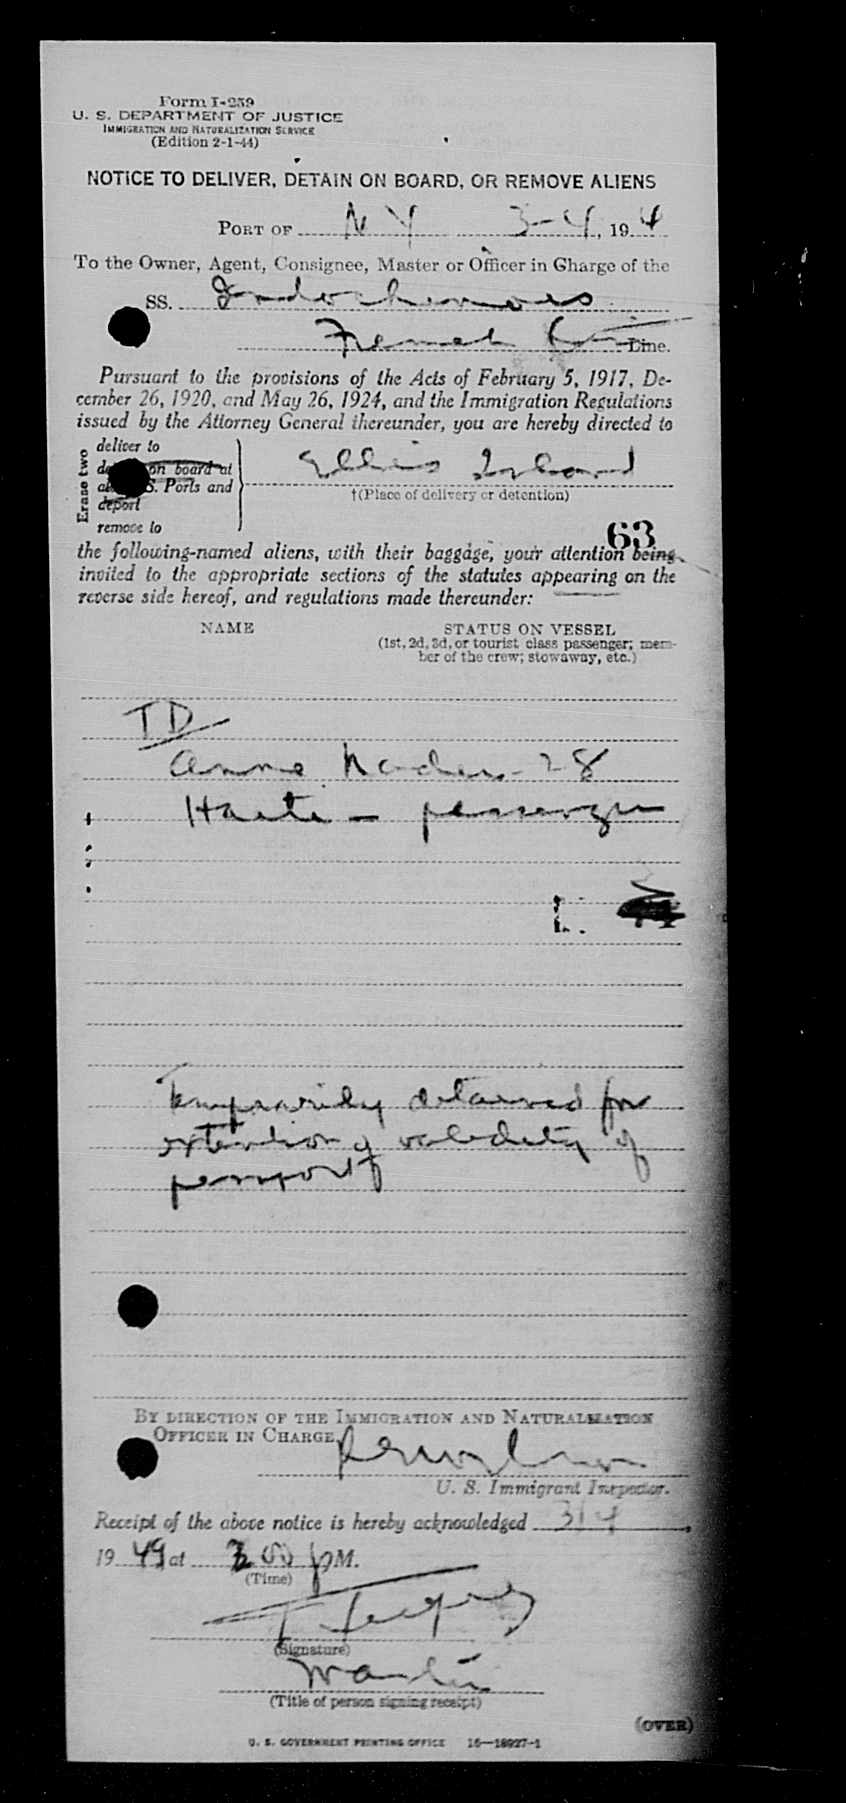 Form I-259
U. S. DEPARTMENT OF JUSTICE
IMMIGRATION AND NATURALIZATION SERVICE
(Edition 2-1-44)
NOTICE TO DELIVER, DETAIN ON BOARD, OR REMOVE ALIENS
PORT OF N Y 3-4, 194
To the Owner, Agent, Consignee, Master or Officer in Charge of the
SS. Indochinois
French Line.
Pursuant to the provisions of the Acts of February 5, 1917, De-
cember 26, 1920, and May 26, 1924, and the Immigration Regulations
issued by the Attorney General thereunder, you are hereby directed to
Erase two
deliver to
on board at
S. Ports and
deport
remove to
Ellis Island
†(Place of delivery or detention)
63
the following-named aliens, with their baggage, your attention being
invited to the appropriate sections of the statutes appearing on the
reverse side hereof, and regulations made thereunder:
NAME STATUS ON VESSEL
(1st, 2d, 3d, or tourist class passenger; mem-
ber of the crew; stowaway, etc.)
TD
Anne - 28
Haiti - passenger
Temporarily detained for
extention of validity of
passport
BY DIRECTION OF THE IMMIGRATION AND NATURALIZATION
OFFICER IN CHARGE,
U. S. Immigrant Inspector.
Receipt of the above notice is hereby acknowledged 3/4,
1949 at 3 00 PM.
(Time)
(Signature)
(Title of person signing receipt)
(OVER)
U. S. GOVERNMENT PRINTING OFFICE 16—18927-1